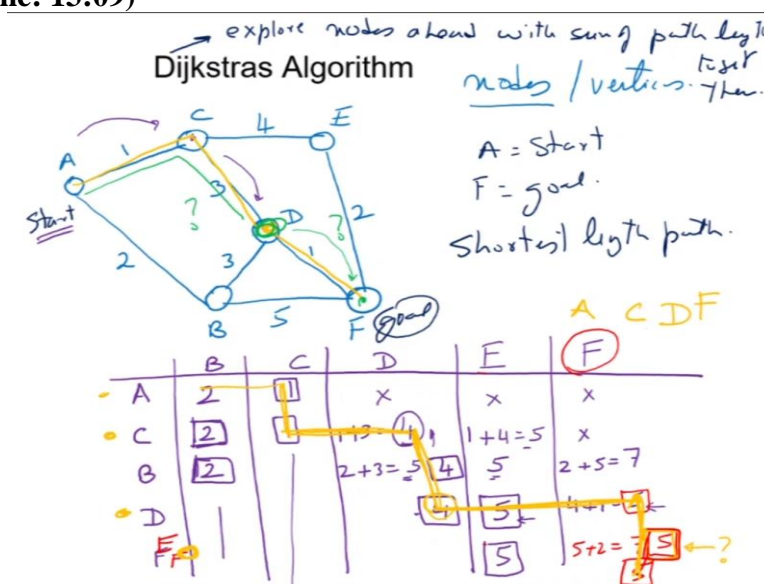 ne: 15:09)
explore nodes ahead with sum of path legth
Dijkstras Algorithm
nodes / vertices.
A = Start
F = goal.
Shortest legth path.
A C D F
C 4 E
A 1
Start
3
?
D
?
2
2
3
1
B 5 F goal
B C D E F
A 2 1 x x x
C 2 1 1+3=4 1+4=5 x
B 2 2+3=5 4 5 2+5=7
D 4 5
E 5 5+2=7 5 ?
F